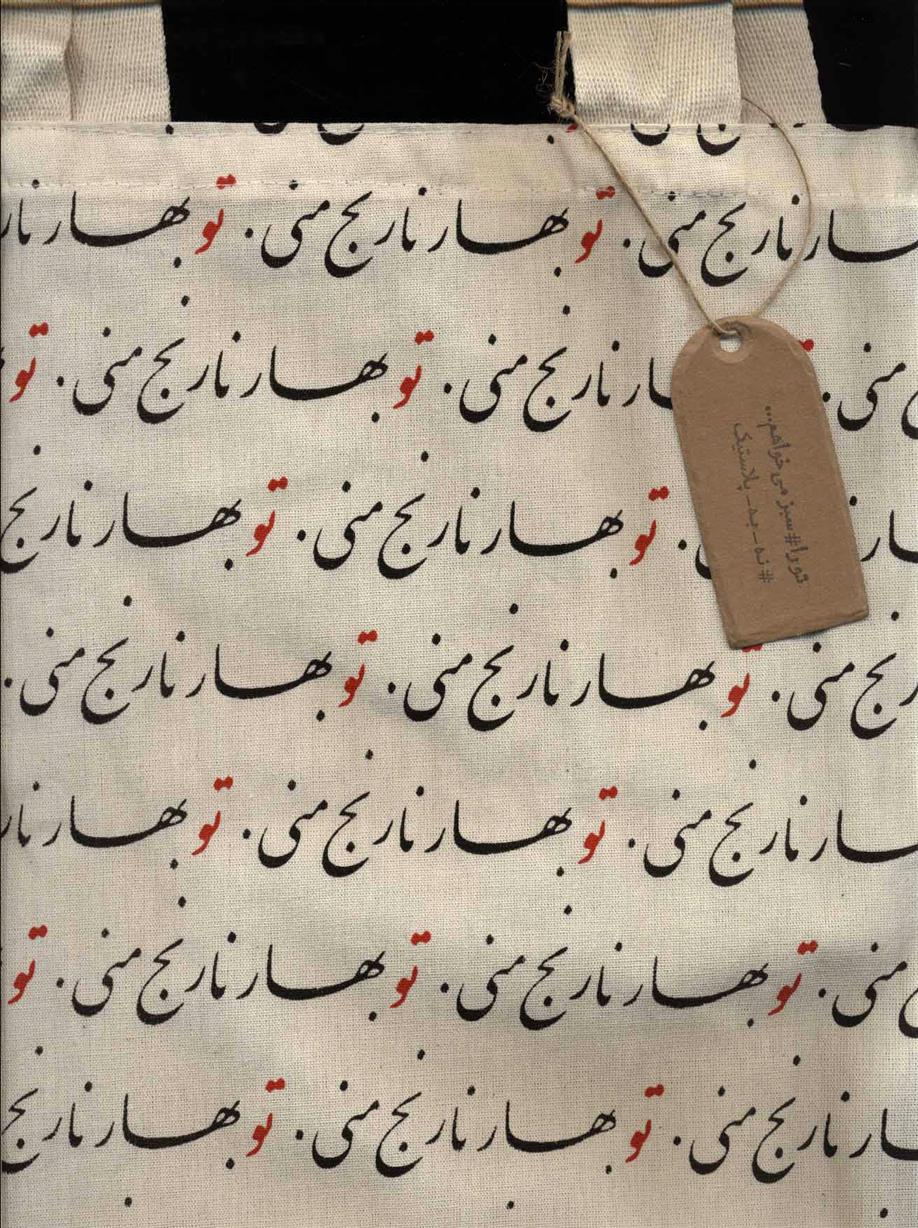 نارنج منی . تو بهار نارنج منی . تو بهار
منی . نارنج منی . تو بهار نارنج منی . تو
تو بهار نارنج منی . تو بهار نارنج
منی . تو بهار نارنج منی . تو بهار نارنج منی .
نارنج منی . تو بهار نارنج منی . تو بهار
منی . تو بهار نارنج منی . تو بهار نارنج منی . تو
نارنج منی . تو بهار نارنج منی . تو بهار نارنج
تو را #سبز می خواهم...
#نه_به_پلاستیک